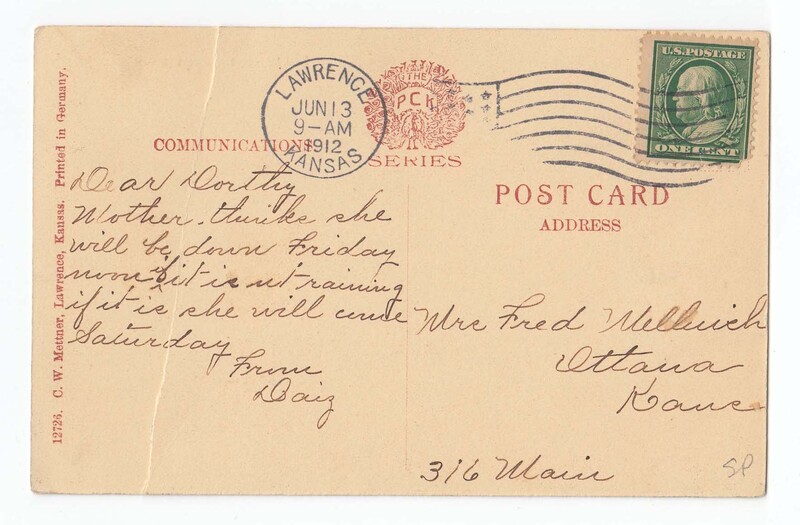 12726. C. W. Mettner, Lawrence, Kansas. Printed in Germany.
LAWRENCE
JUN 13
9-AM
1912
KANSAS
THE
PCK
SERIES
U.S. POSTAGE
ONE CENT
COMMUNICATIONS
POST CARD
ADDRESS
Dear Dorthy
Mother thinks she
will be down Friday
noon if it is nt raining
if it is she will come
Saturday
From
Daiz
Mrs Fred
Ottawa
Kans
316 Main
SP